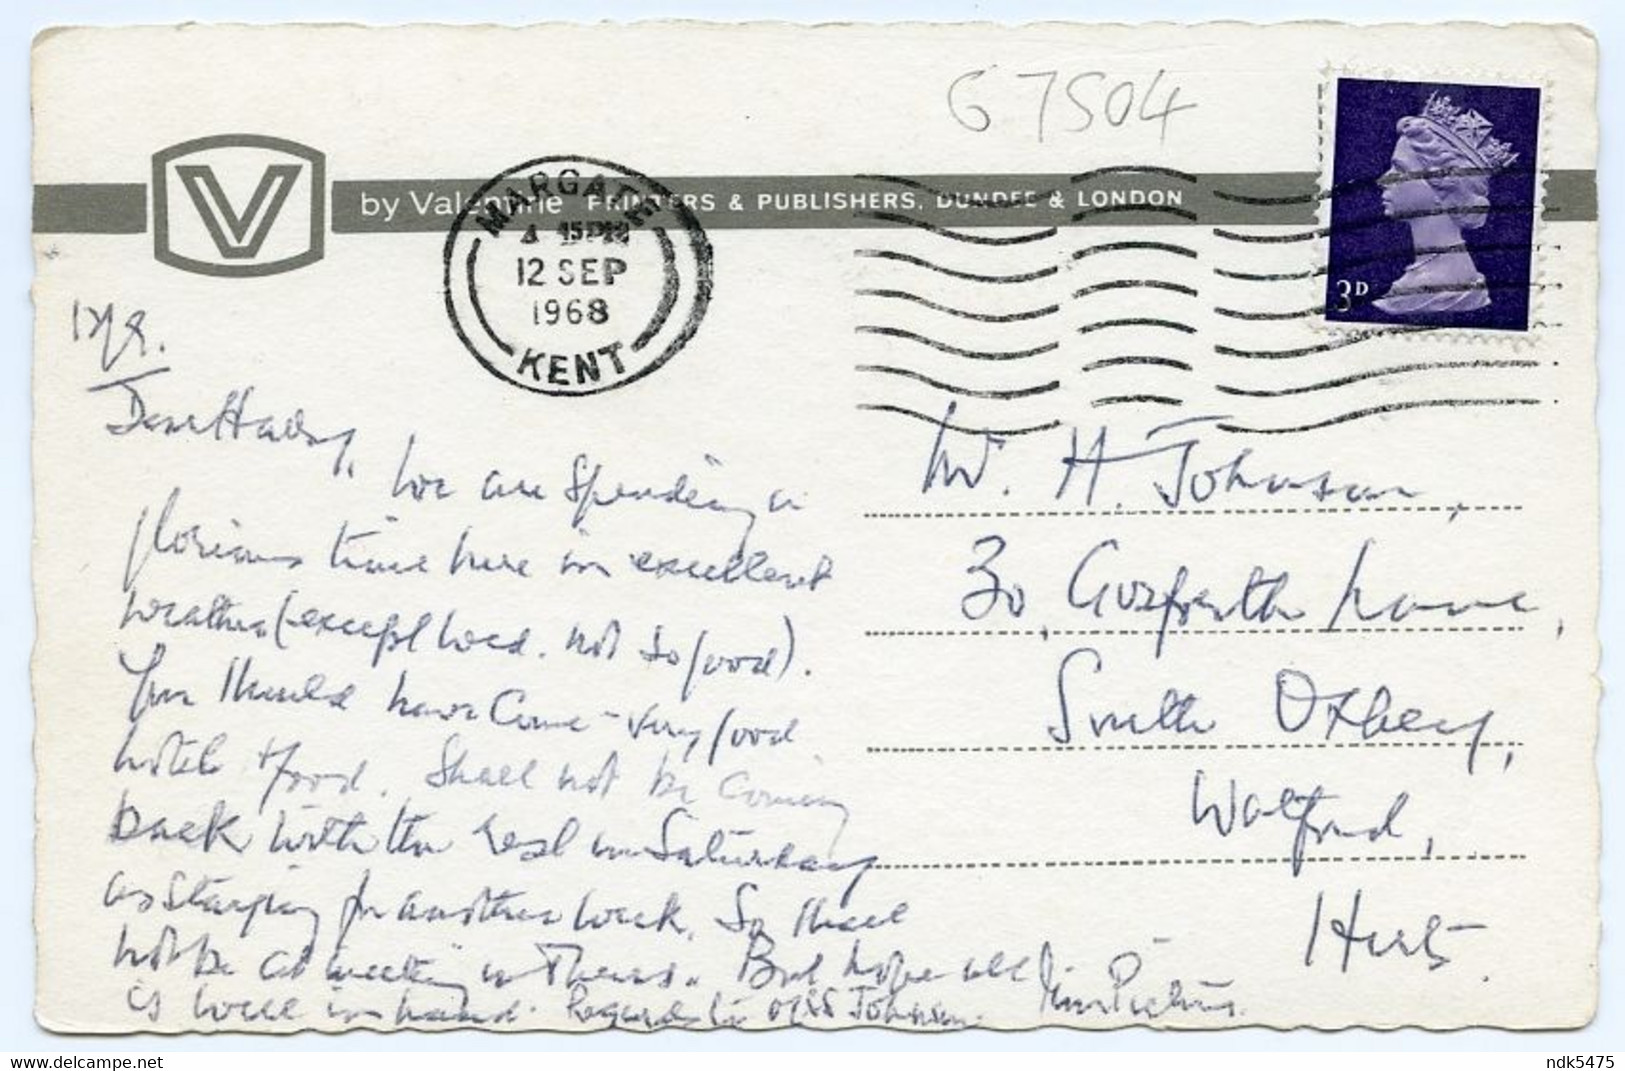 G 7504
V
by Valentine PRINTERS & PUBLISHERS, DUNDEE & LONDON
MARGATE
4 15PM
12 SEP
1968
KENT
3D
12/9.
Dear Harry,
We are spending a
glorious time here in excellent
weather (except Wed. not so good).
You should have come - very good
hotel & food. Shall not be coming
back with the rest on Saturday
as staying for another week. So shall
not be at meeting on Thurs. But hope all
is well in hand. Regards to Johnson.
Mr. H. Johnson,
30, Gosforth Lane,
South Oxhey,
Watford,
Herts.
delcampe.net
ndk5475